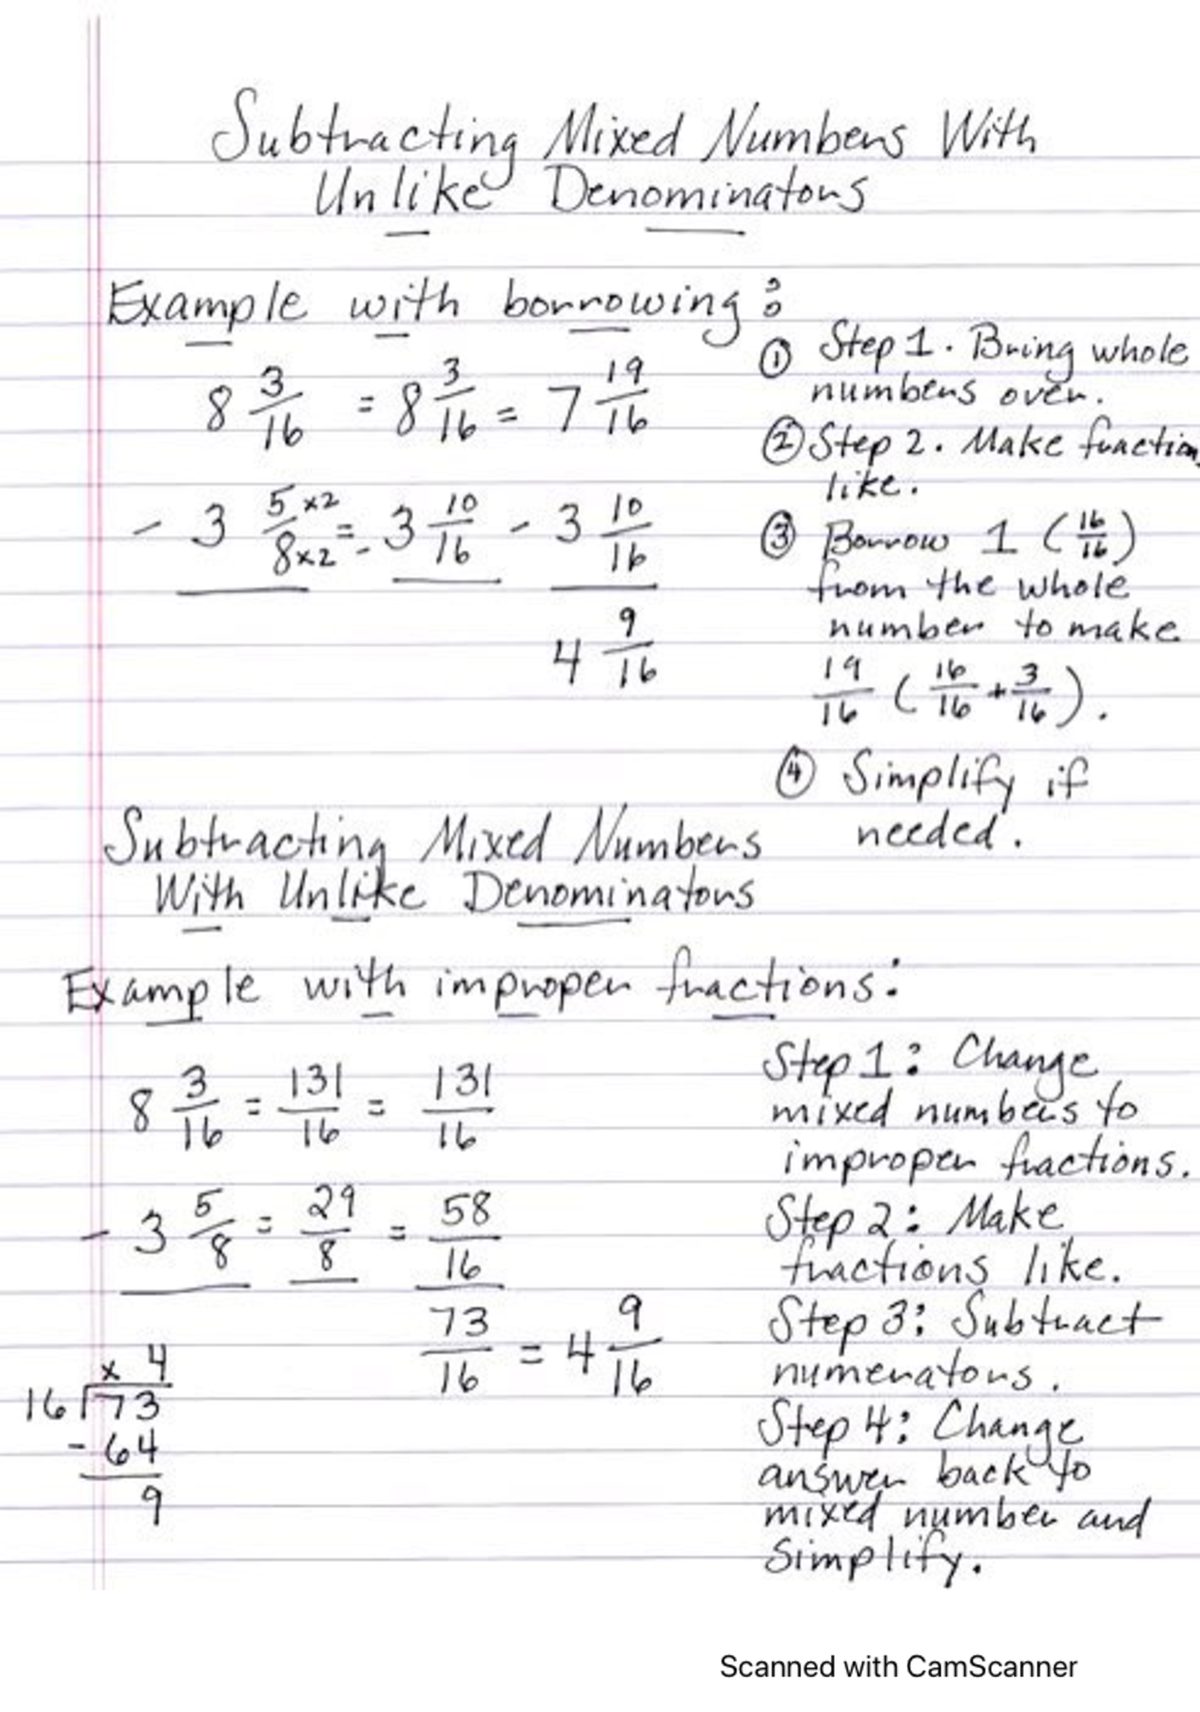 Subtracting Mixed Numbers With
Unlike Denominators
Example with borrowing:
8 3/16 = 8 3/16 = 7 19/16
- 3 5/8 x2/x2 = - 3 10/16 - 3 10/16
4 9/16
① Step 1. Bring whole
numbers over.
② Step 2. Make fraction
like.
③ Borrow 1 (16/16)
from the whole
number to make
19/16 (16/16 + 3/16).
④ Simplify if
needed.
Subtracting Mixed Numbers
With Unlike Denominators
Example with improper fractions:
8 3/16 = 131/16 = 131/16
- 3 5/8 = 29/8 = 58/16
73/16 = 4 9/16
x 4
16 73
- 64
9
Step 1: Change
mixed numbers to
improper fractions.
Step 2: Make
fractions like.
Step 3: Subtract
numerators.
Step 4: Change
answer back to
mixed number and
simplify.
Scanned with CamScanner